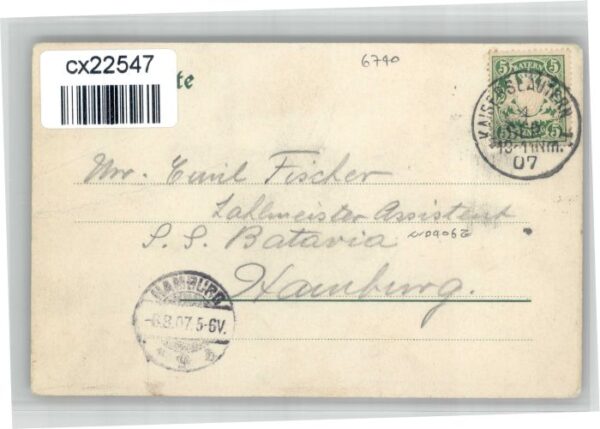 cx22547
6740
te
5 BAYERN 5
KAISERSLAUTERN
07
Mr. Emil Fischer
Zahlmeister Assistent
S. S. Batavia
Hamburg.
HAMBURG
-6.3.07.5-6V.